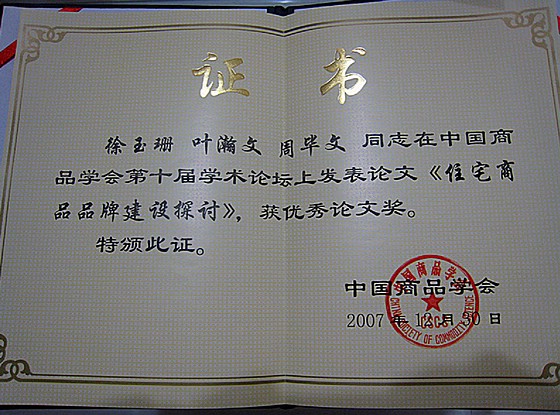 证 书
徐玉珊 叶瀚文 周毕文 同志在中国商
品学会第十届学术论坛上发表论文《住宅商
品品牌建设探讨》，获优秀论文奖。
特颁此证。
中国商品学会
2007 年 12 月 30 日
中国商品学会
CHINA SOCIETY OF COMMODITY SCIENCE
CSCS